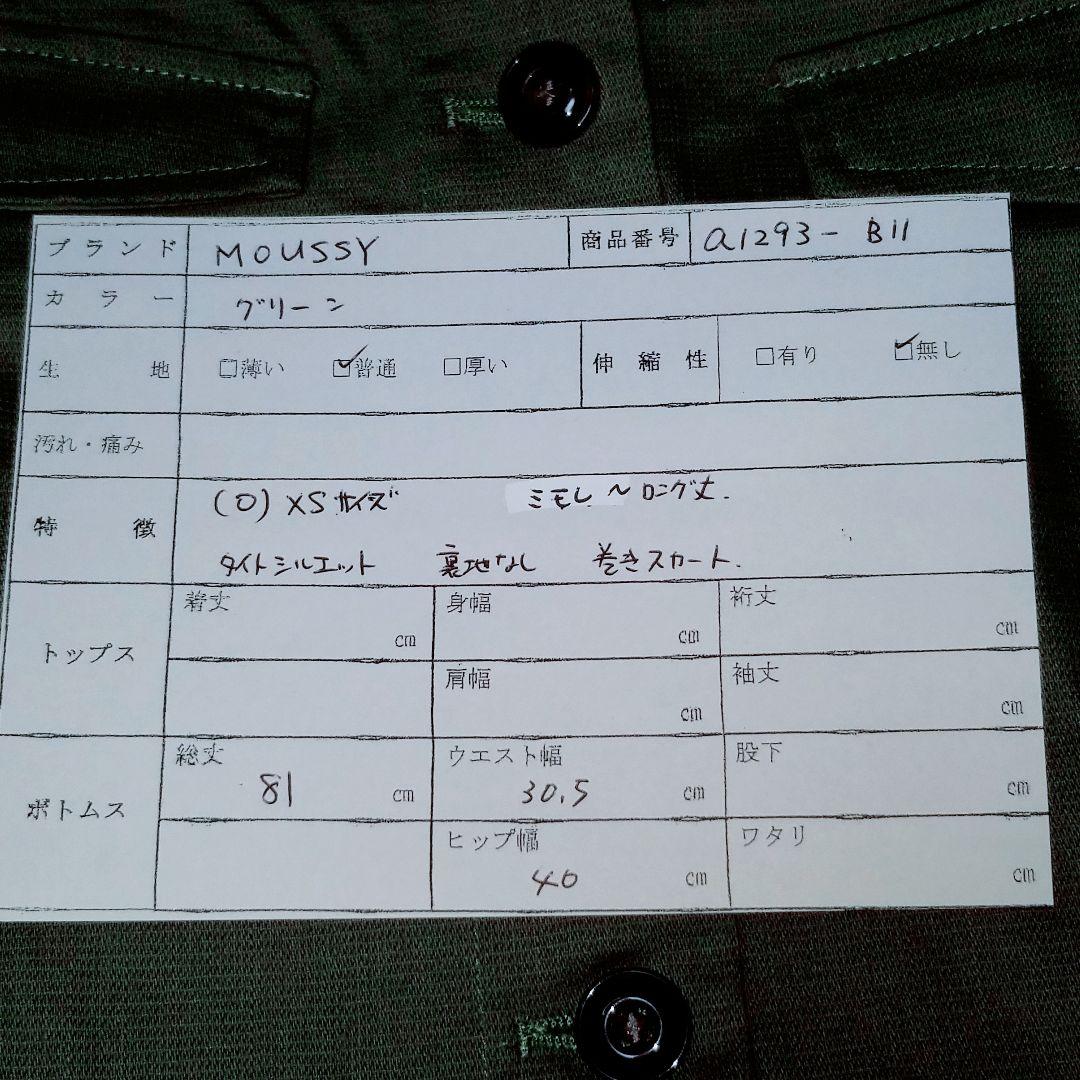 ブランド MOUSSY 商品番号 a1293- B11
カラー グリーン
生地 □薄い ☑普通 □厚い 伸縮性 □有り ☑無し
汚れ・痛み
特徴 (0) XSサイズ ミモレ〜ロング丈.
タイトシルエット 裏地なし 巻きスカート.
トップス 着丈 cm 身幅 cm 裄丈 cm
肩幅 cm 袖丈 cm
ボトムス 総丈 81 cm ウエスト幅 30.5 cm 股下 cm
ヒップ幅 40 cm ワタリ cm